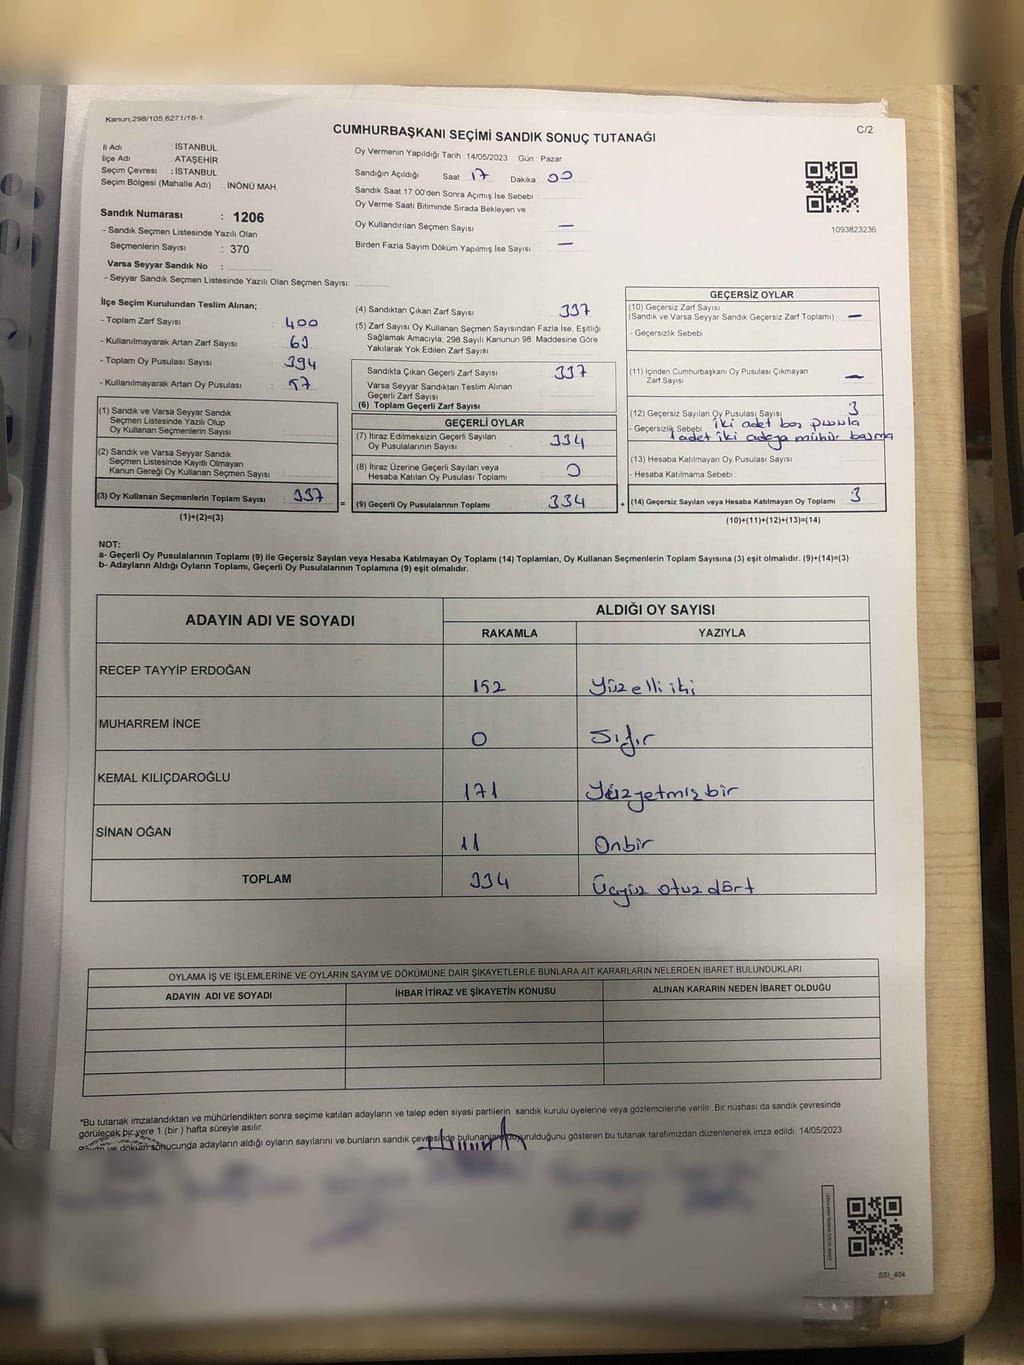 Kanun:298/105,6271/18-1
CUMHURBAŞKANI SEÇİMİ SANDIK SONUÇ TUTANAĞI
C/2
İl Adı : İSTANBUL
İlçe Adı : ATAŞEHİR
Seçim Çevresi : İSTANBUL
Seçim Bölgesi (Mahalle Adı) : İNÖNÜ MAH.
Sandık Numarası : 1206
- Sandık Seçmen Listesinde Yazılı Olan
Seçmenlerin Sayısı : 370
Varsa Seyyar Sandık No :
- Seyyar Sandık Seçmen Listesinde Yazılı Olan Seçmen Sayısı:
Oy Vermenin Yapıldığı Tarih :14/05/2023 Gün : Pazar
Sandığın Açıldığı Saat : 17 Dakika : 00
Sandık Saat 17.00'den Sonra Açımış İse Sebebi :
Oy Verme Saati Bitiminde Sırada Bekleyen ve
Oy Kullandırılan Seçmen Sayısı : —
Birden Fazla Sayım Döküm Yapılmış İse Sayısı : —
1093823236
İlçe Seçim Kurulundan Teslim Alınan;
- Toplam Zarf Sayısı : 400
- Kullanılmayarak Artan Zarf Sayısı : 63
- Toplam Oy Pusulası Sayısı : 394
- Kullanılmayarak Artan Oy Pusulası : 57
(1) Sandık ve Varsa Seyyar Sandık
Seçmen Listesinde Yazılı Olup
Oy Kullanan Seçmenlerin Sayısı :
(2) Sandık ve Varsa Seyyar Sandık
Seçmen Listesinde Kayıtlı Olmayan
Kanun Gereği Oy Kullanan Seçmen Sayısı :
(3) Oy Kullanan Seçmenlerin Toplam Sayısı : 337 =
(1)+(2)=(3)
(4) Sandıktan Çıkan Zarf Sayısı : 337
(5) Zarf Sayısı Oy Kullanan Seçmen Sayısından Fazla İse, Eşitliği
Sağlamak Amacıyla; 298 Sayılı Kanunun 98. Maddesine Göre
Yakılarak Yok Edilen Zarf Sayısı :
Sandıkta Çıkan Geçerli Zarf Sayısı : 337
Varsa Seyyar Sandıktan Teslim Alınan
Geçerli Zarf Sayısı :
(6) Toplam Geçerli Zarf Sayısı :
GEÇERLİ OYLAR
(7) İtiraz Edilmeksizin Geçerli Sayılan
Oy Pusulalarının Sayısı : 334
(8) İtiraz Üzerine Geçerli Sayılan veya
Hesaba Katılan Oy Pusulası Toplamı : 0
(9) Geçerli Oy Pusulalarının Toplamı : 334 +
GEÇERSİZ OYLAR
(10) Geçersiz Zarf Sayısı
(Sandık ve Varsa Seyyar Sandık Geçersiz Zarf Toplamı) : —
- Geçersizlik Sebebi :
(11) İçinden Cumhurbaşkanı Oy Pusulası Çıkmayan
Zarf Sayısı : —
(12) Geçersiz Sayılan Oy Pusulası Sayısı : 3
- Geçersizlik Sebebi : iki adet boş pusula
1 adet iki adaya mühür basma
(13) Hesaba Katılmayan Oy Pusulası Sayısı :
- Hesaba Katılmama Sebebi :
(14) Geçersiz Sayılan veya Hesaba Katılmayan Oy Toplamı : 3
(10)+(11)+(12)+(13)=(14)
NOT:
a- Geçerli Oy Pusulalarının Toplamı (9) ile Geçersiz Sayılan veya Hesaba Katılmayan Oy Toplamı (14) Toplamları, Oy Kullanan Seçmenlerin Toplam Sayısına (3) eşit olmalıdır. (9)+(14)=(3)
b- Adayların Aldığı Oyların Toplamı, Geçerli Oy Pusulalarının Toplamına (9) eşit olmalıdır.
ADAYIN ADI VE SOYADI ALDIĞI OY SAYISI
RAKAMLA YAZIYLA
RECEP TAYYİP ERDOĞAN 152 Yüzelliiki
MUHARREM İNCE 0 Sıfır
KEMAL KILIÇDAROĞLU 171 Yüzyetmişbir
SİNAN OĞAN 11 Onbir
TOPLAM 334 Üçyüz otuz dört
OYLAMA İŞ VE İŞLEMLERİNE VE OYLARIN SAYIM VE DÖKÜMÜNE DAİR ŞİKAYETLERLE BUNLARA AİT KARARLARIN NELERDEN İBARET BULUNDUKLARI
ADAYIN ADI VE SOYADI İHBAR İTİRAZ VE ŞİKAYETİN KONUSU ALINAN KARARIN NEDEN İBARET OLDUĞU
*Bu tutanak imzalandıktan ve mühürlendikten sonra seçime katılan adayların ve talep eden siyasi partilerin sandık kurulu üyelerine veya gözlemcilerine verilir. Bir nüshası da sandık çevresinde
görülecek bir yere 1 (bir) hafta süreyle asılır.
Sayım ve döküm sonucunda adayların aldığı oyların sayılarını ve bunların sandık çevresinde bulunanlara duyurulduğunu gösteren bu tutanak tarafımızdan düzenlenerek imza edildi. 14/05/2023
SSI_404